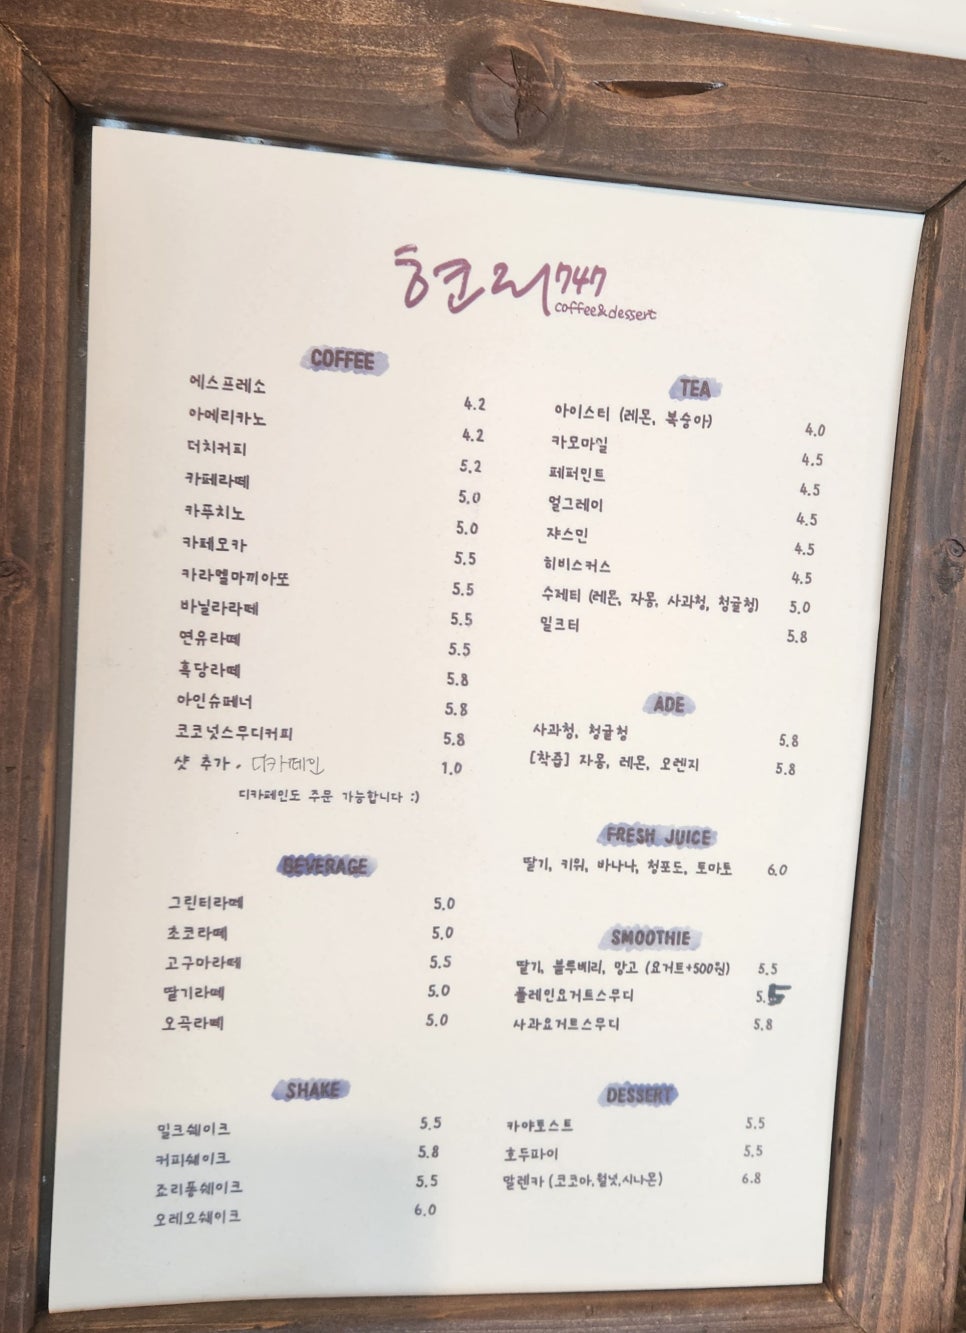 현리747
coffee&dessert
COFFEE
에스프레소 4.2
아메리카노 4.2
더치커피 5.2
카페라떼 5.0
카푸치노 5.0
카페모카 5.5
카라멜마끼아또 5.5
바닐라라떼 5.5
연유라떼 5.5
흑당라떼 5.8
아인슈페너 5.8
코코넛스무디커피 5.8
샷 추가, 디카페인 1.0
디카페인도 주문 가능합니다 :)
BEVERAGE
그린티라떼 5.0
초코라떼 5.0
고구마라떼 5.5
딸기라떼 5.0
오곡라떼 5.0
SHAKE
밀크쉐이크 5.5
커피쉐이크 5.8
죠리퐁쉐이크 5.5
오레오쉐이크 6.0
TEA
아이스티 (레몬, 복숭아) 4.0
카모마일 4.5
페퍼민트 4.5
얼그레이 4.5
쟈스민 4.5
히비스커스 4.5
수제티 (레몬, 자몽, 사과청, 청귤청) 5.0
밀크티 5.8
ADE
사과청, 청귤청 5.8
[착즙] 자몽, 레몬, 오렌지 5.8
FRESH JUICE
딸기, 키위, 바나나, 청포도, 토마토 6.0
SMOOTHIE
딸기, 블루베리, 망고 (요거트+500원) 5.5
플레인요거트스무디 5.5
사과요거트스무디 5.8
DESSERT
카야토스트 5.5
호두파이 5.5
알렌카 (코코아,월넛,시나몬) 6.8